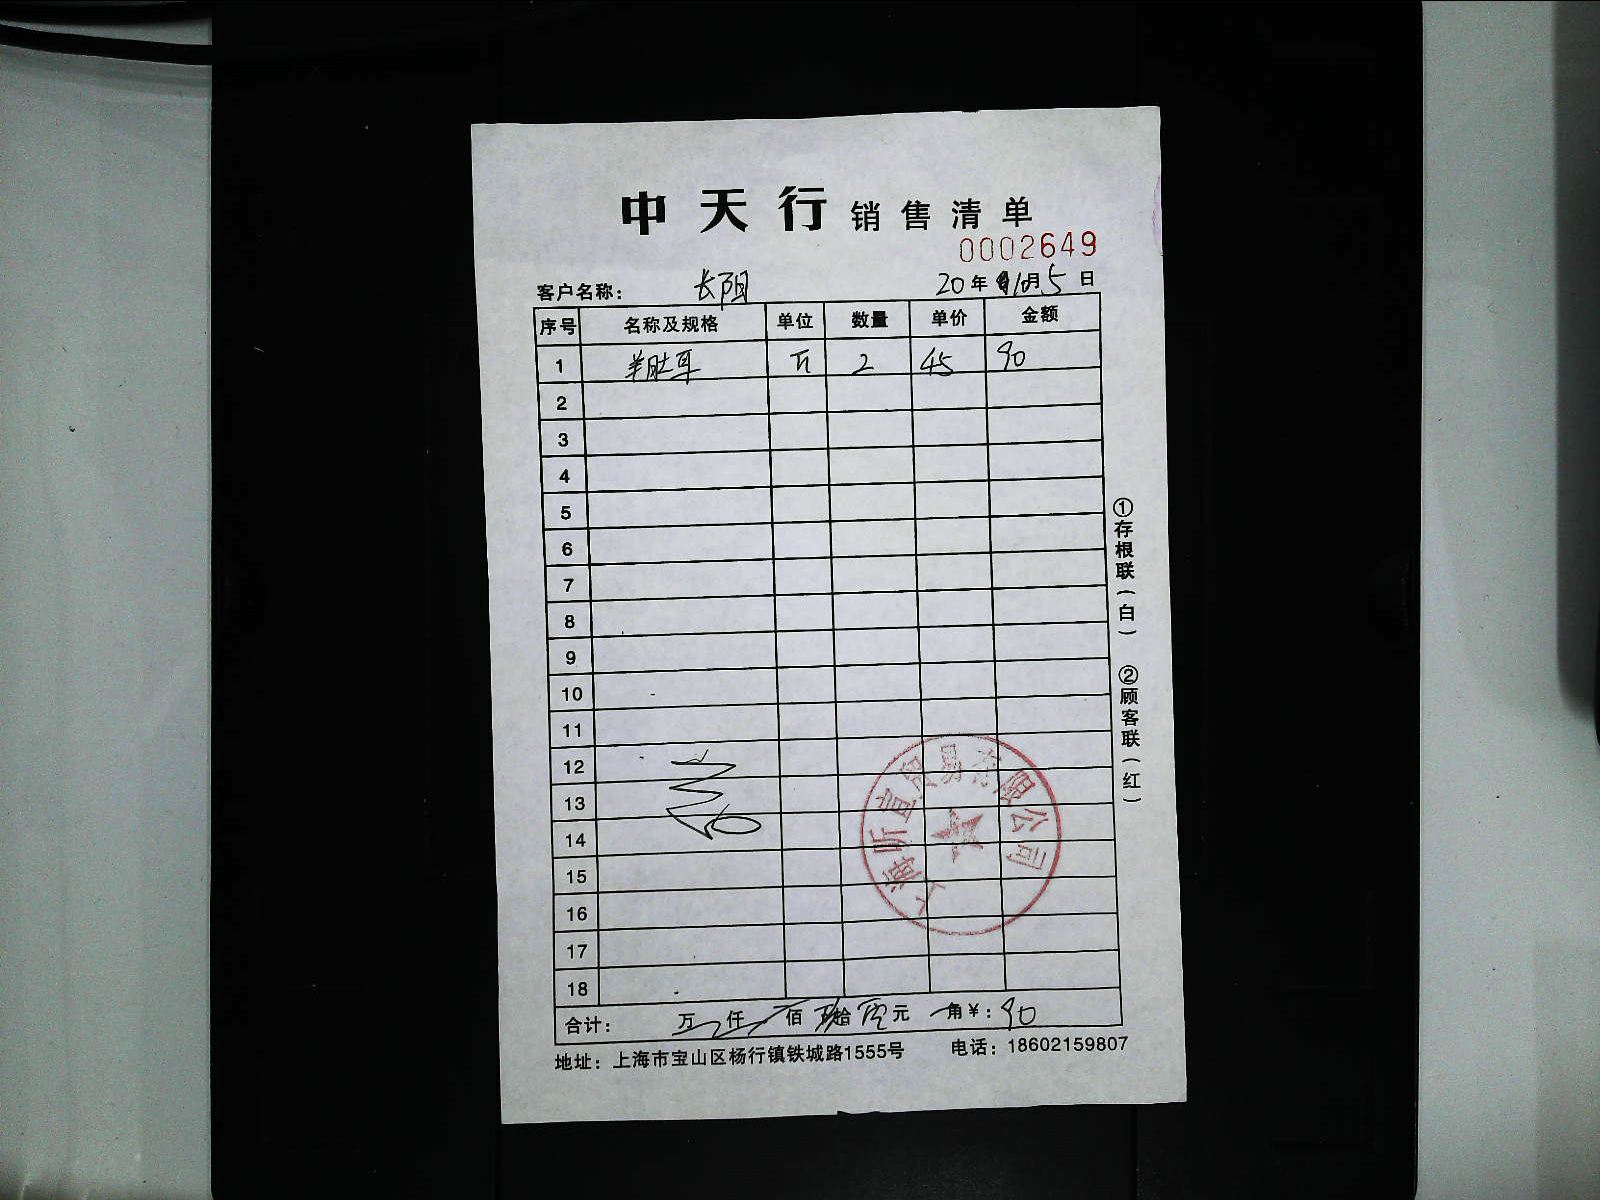 中天行 销售清单
0002649
客户名称： 长阳 20年10月5日
序号 名称及规格 单位 数量 单价 金额
1 羊肚耳 斤 2 45 90
2
3
4
5
6
7
8
9
10
11
12
13
14
15
16
17
18
上海昕宜贸易有限公司
合计： 万 仟 佰 玖拾零元 角￥：90
地址：上海市宝山区杨行镇铁城路1555号 电话：18602159807
①存根联（白） ②顾客联（红）